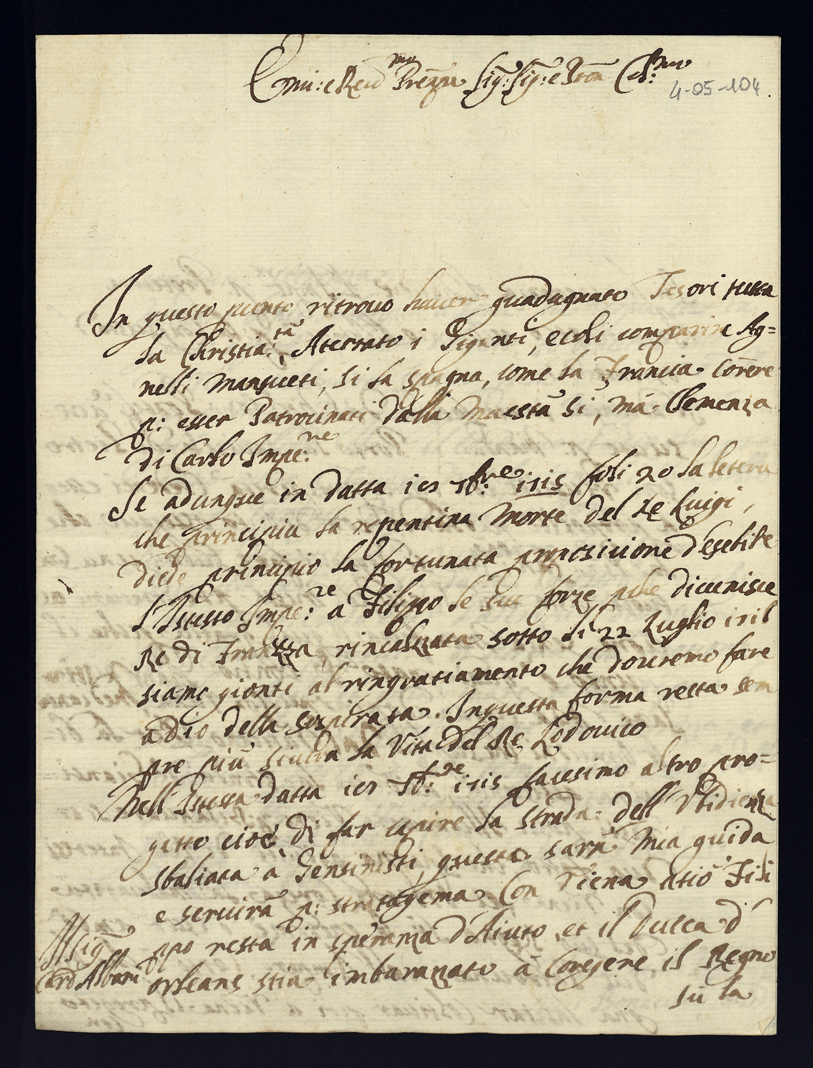 Emi: e Reu.mo Prezza Sig: Sig: e Pron Col:mo
4-05-104
In questo punto ritrouo hauer guadagnato Tesori tutta
la Christia:tà Aterrato i Giganti, e coli comparire Ag=
nelli mansueti, si la spagna, come la Francia correre
p: esser Patrocinati dalla Maestà si, mà Clemenza
di Carlo Impe:re
Se adunque in datta ics 8bre 1715 foli 20 la letera
che principia la repentina Morte del Re Luigi,
diede principio la fortunata proposicione d'esebite
l'Istesso Impe:re à Filippo le sue forze pche diuenisse
Re di Francia, rincalzata sotto li 22 Luglio 1718
siamo gionti al ringratiamento che douremo fare
a Dio della sospirata. In questa forma resta sem
pre più sicura la Vita del Re Lodouico
Nell'Istessa datta ics 8bre 1715 facesimo altro pro=
getto cioè di far capire la strada dell'Vbidienza
sbaliata à Gensinisti, questo sarà mia guida
e seruirà p: stratagema Con Viena atiò Fili
ppo resta in speranza d'Aiuto et il Ducca d'
Orleans stia imbarazzato à Coregere il Regno
sù la
Sig
Card Albani